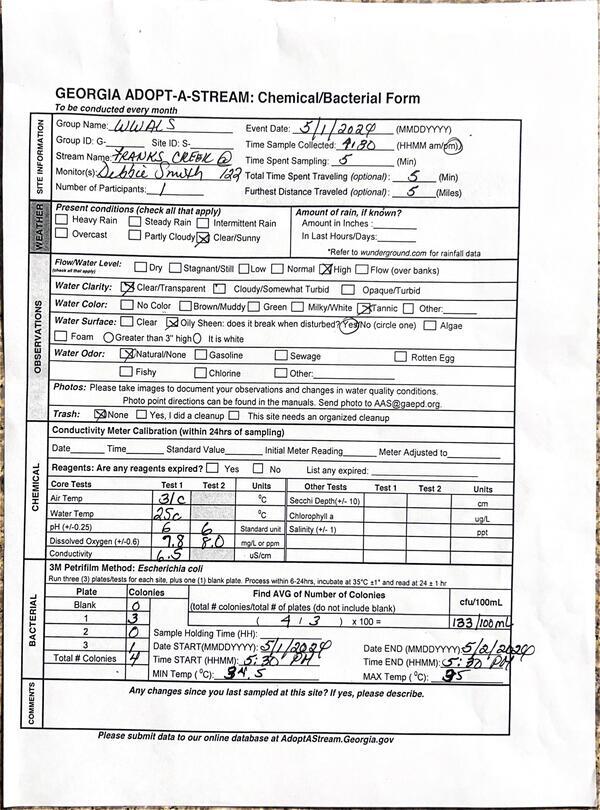 GEORGIA ADOPT-A-STREAM: Chemical/Bacterial Form
To be conducted every month
SITE INFORMATION
Group Name: WWALS Event Date: 5/1/2024 (MMDDYYYY)
Group ID: G- Site ID: S- Time Sample Collected: 4:30 (HHMM am/pm)
Stream Name: FRANKS CREEK @ Time Spent Sampling: 5 (Min)
Monitor(s): Debbie Smith 122 Total Time Spent Traveling (optional): 5 (Min)
Number of Participants: 1 Furthest Distance Traveled (optional): 5 (Miles)
WEATHER
Present conditions (check all that apply) Amount of rain, if known?
Heavy Rain Steady Rain Intermittent Rain Amount in Inches:
Overcast Partly Cloudy Clear/Sunny In Last Hours/Days:
*Refer to wunderground.com for rainfall data
OBSERVATIONS
Flow/Water Level: Dry Stagnant/Still Low Normal High Flow (over banks)
(check all that apply)
Water Clarity: Clear/Transparent Cloudy/Somewhat Turbid Opaque/Turbid
Water Color: No Color Brown/Muddy Green Milky/White Tannic Other:
Water Surface: Clear Oily Sheen: does it break when disturbed? Yes/No (circle one) Algae
Foam Greater than 3" high It is white
Water Odor: Natural/None Gasoline Sewage Rotten Egg
Fishy Chlorine Other:
Photos: Please take images to document your observations and changes in water quality conditions.
Photo point directions can be found in the manuals. Send photo to AAS@gaepd.org.
Trash: None Yes, I did a cleanup This site needs an organized cleanup
CHEMICAL
Conductivity Meter Calibration (within 24hrs of sampling)
Date Time Standard Value Initial Meter Reading Meter Adjusted to
Reagents: Are any reagents expired? Yes No List any expired:
Core Tests Test 1 Test 2 Units Other Tests Test 1 Test 2 Units
Air Temp 31c °C Secchi Depth(+/- 10) cm
Water Temp 25c °C Chlorophyll a ug/L
pH (+/-0.25) 6 6 Standard unit Salinity (+/- 1) ppt
Dissolved Oxygen (+/-0.6) 7.8 8.0 mg/L or ppm
Conductivity 6.5 uS/cm
BACTERIAL
3M Petrifilm Method: Escherichia coli
Run three (3) plates/tests for each site, plus one (1) blank plate. Process within 6-24hrs, incubate at 35°C ±1° and read at 24 ± 1 hr
Plate Colonies Find AVG of Number of Colonies cfu/100mL
Blank 0 (total # colonies/total # of plates (do not include blank)
1 3 ( 4 / 3 ) x 100 = 133/100mL
2 0 Sample Holding Time (HH):
3 1 Date START(MMDDYYYY): 5/1/2024 Date END (MMDDYYYY): 5/2/2024
Total # Colonies 4 Time START (HHMM): 5:30 PM Time END (HHMM): 5:30 PM
MIN Temp (°C): 34.5 MAX Temp (°C): 35
COMMENTS
Any changes since you last sampled at this site? If yes, please describe.
Please submit data to our online database at AdoptAStream.Georgia.gov